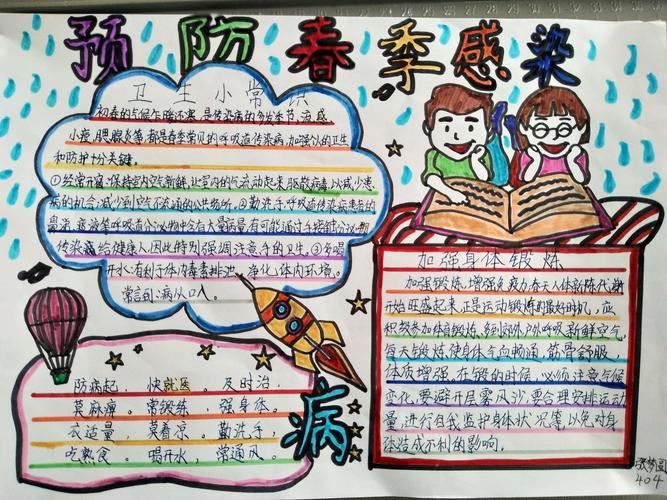 预防春季感染病
卫生小常识
初春的气候乍暖还寒,是传染病的多发季节,流感,
小痘,腮腺炎等,都是春季常见的呼吸道传染病,加强个人的卫生
和防护十分关键。
①经常开窗,保持室内空气新鲜,让室内的气流动起来,驱散病毒,以减少患
病的机会,减少到空气不流通的公共场所。②勤洗手,呼吸道传染病患者的
鼻涕、痰液等呼吸道分泌物中含有大量病毒,有可能通过手接触分泌物
传染病给健康人,因此特别强调注意手的卫生。③多喝
开水,有利于体内毒素排泄,净化体内环境。
常言到:病从口入。
加强身体锻炼
加强锻炼,增强免疫力春天人体新陈代谢
开始旺盛起来,正是运动锻炼的最好时机,应
积极参加体育锻炼,多到郊外户外呼吸新鲜空气,
每天锻炼,使身体气血畅通,筋骨舒服,
体质增强。在锻的时候,必须注意气候
变化,要避开晨雾风沙,要合理安排运动
量,进行自我监护身体状况等,以免对身
体造成不利的影响。
防病起,快就医,及时治,
莫麻痹。常锻练,强身体。
衣适量,莫着凉。勤洗手,
吃熟食。喝开水,常通风。
404